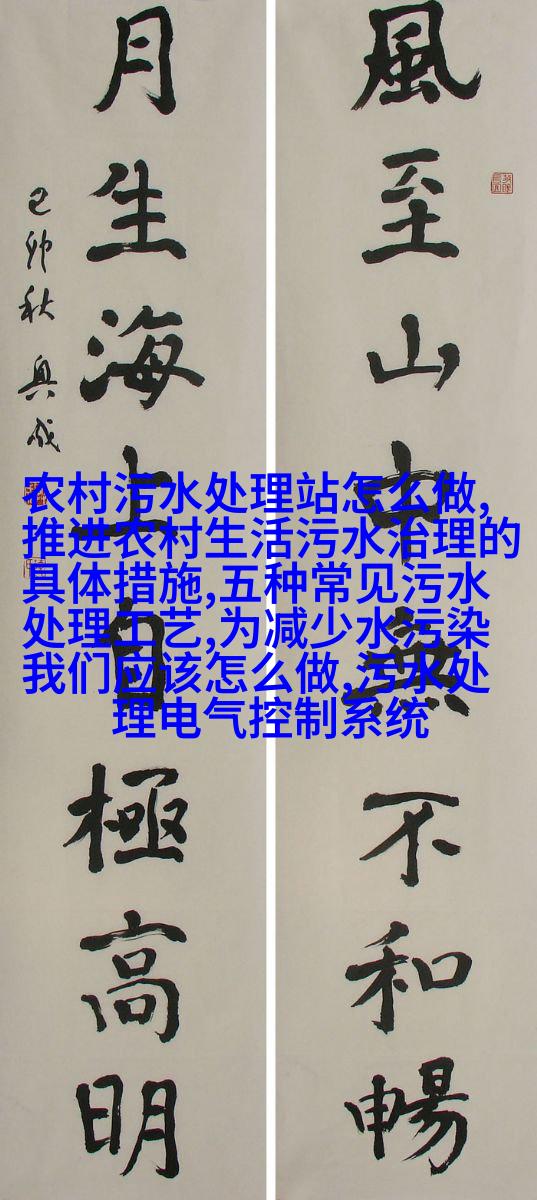 風至山中無不和暢
月生海上自極高明
己卯秋
农村污水处理站怎么做,
推进农村生活污水治理的
具体措施,五种常见污水
处理工艺,为减少水污染
我们应该怎么做,污水处
理电气控制系统